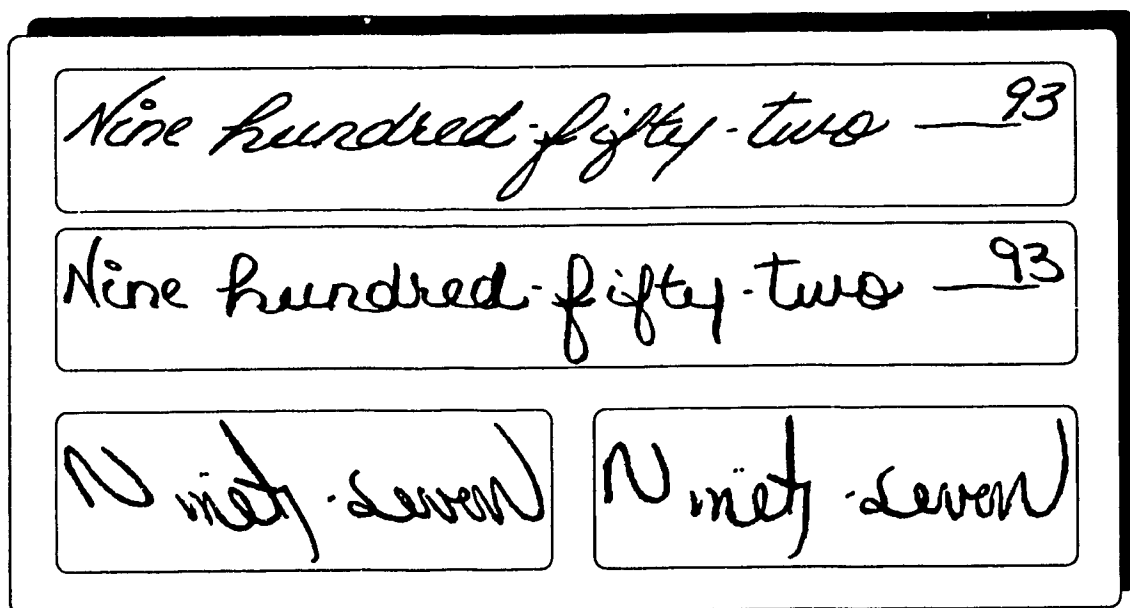 Nine hundred-fifty-two — 93
Nine hundred-fifty-two — 93
Ninety-Seven Ninety-Seven